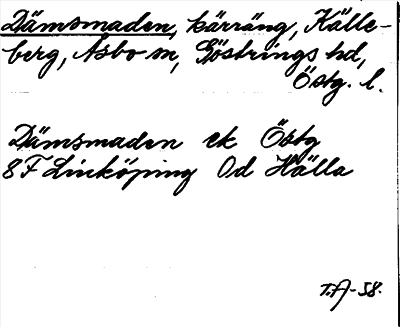 Dämsmaden, kärräng, Källe-
berg, Åsbo sn, Göstrings hd,
Östg. l.
Dämsmaden ek Östg
8F Linköping Od Hälla
T.A-58.